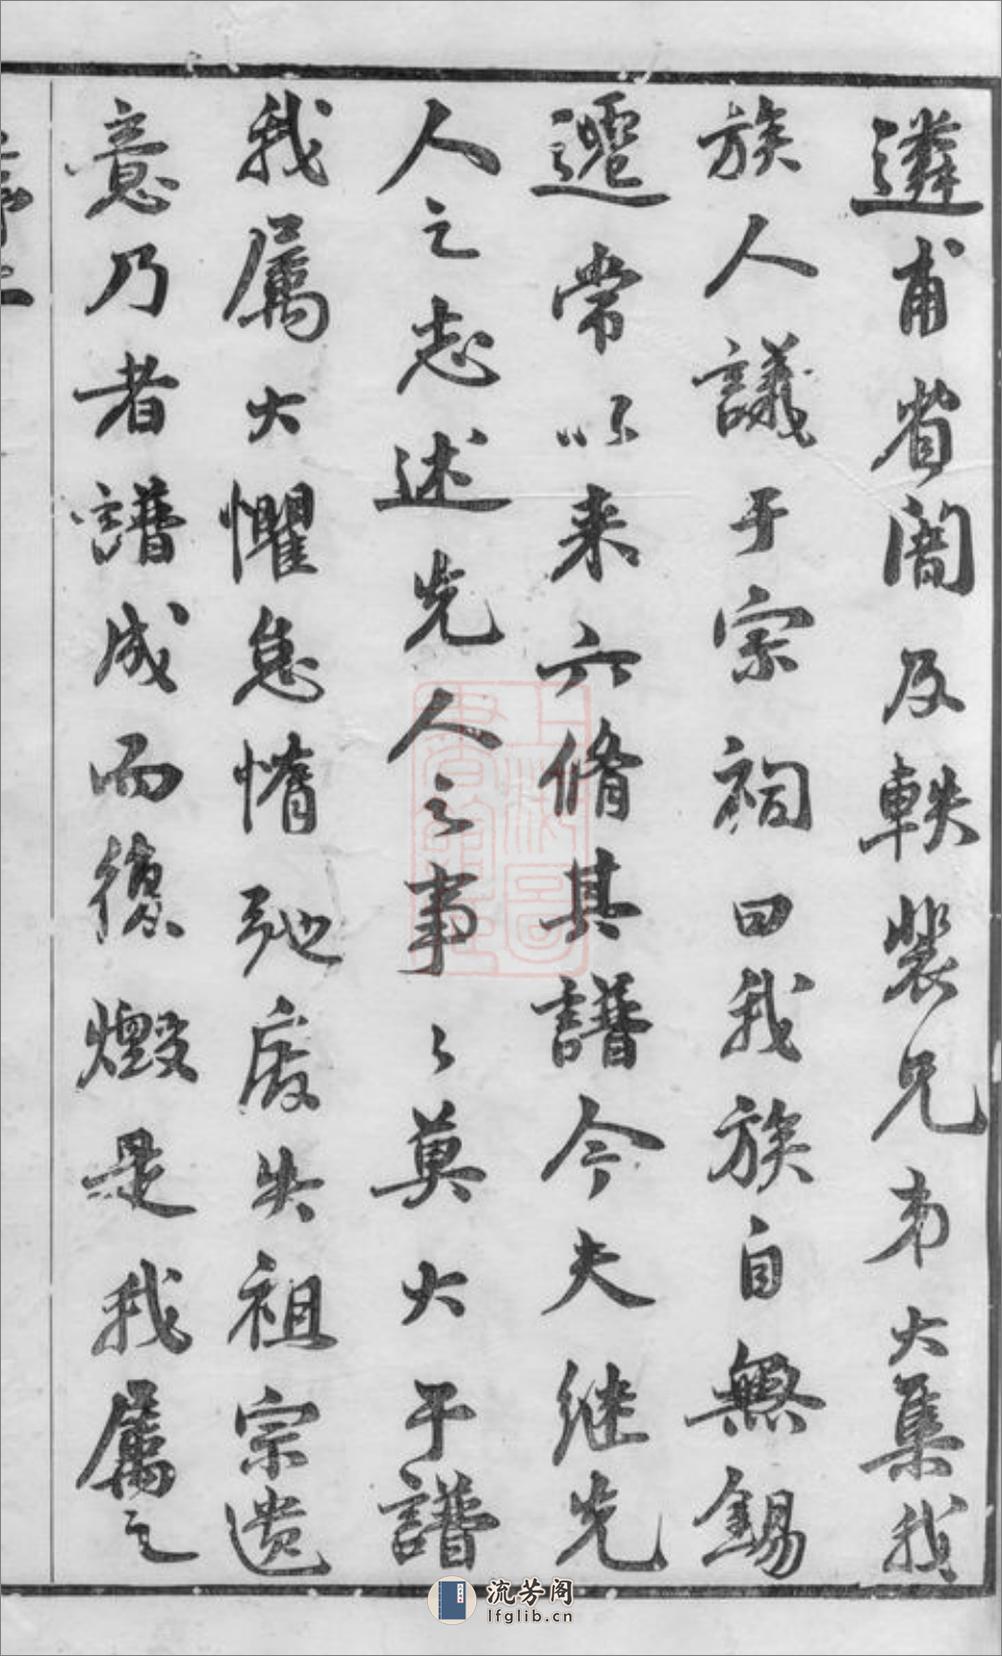 遴甫省闇及軼裴兄弟大集我
族人議于宗祠曰我族自無錫
遷常以来六脩其譜今夫继先
人之志述先人之事〻莫大于譜
我属大懼怠惰弛废失祖宗遗
意乃者譜成而復燬是我属之
流芳阁
lfglib.cn